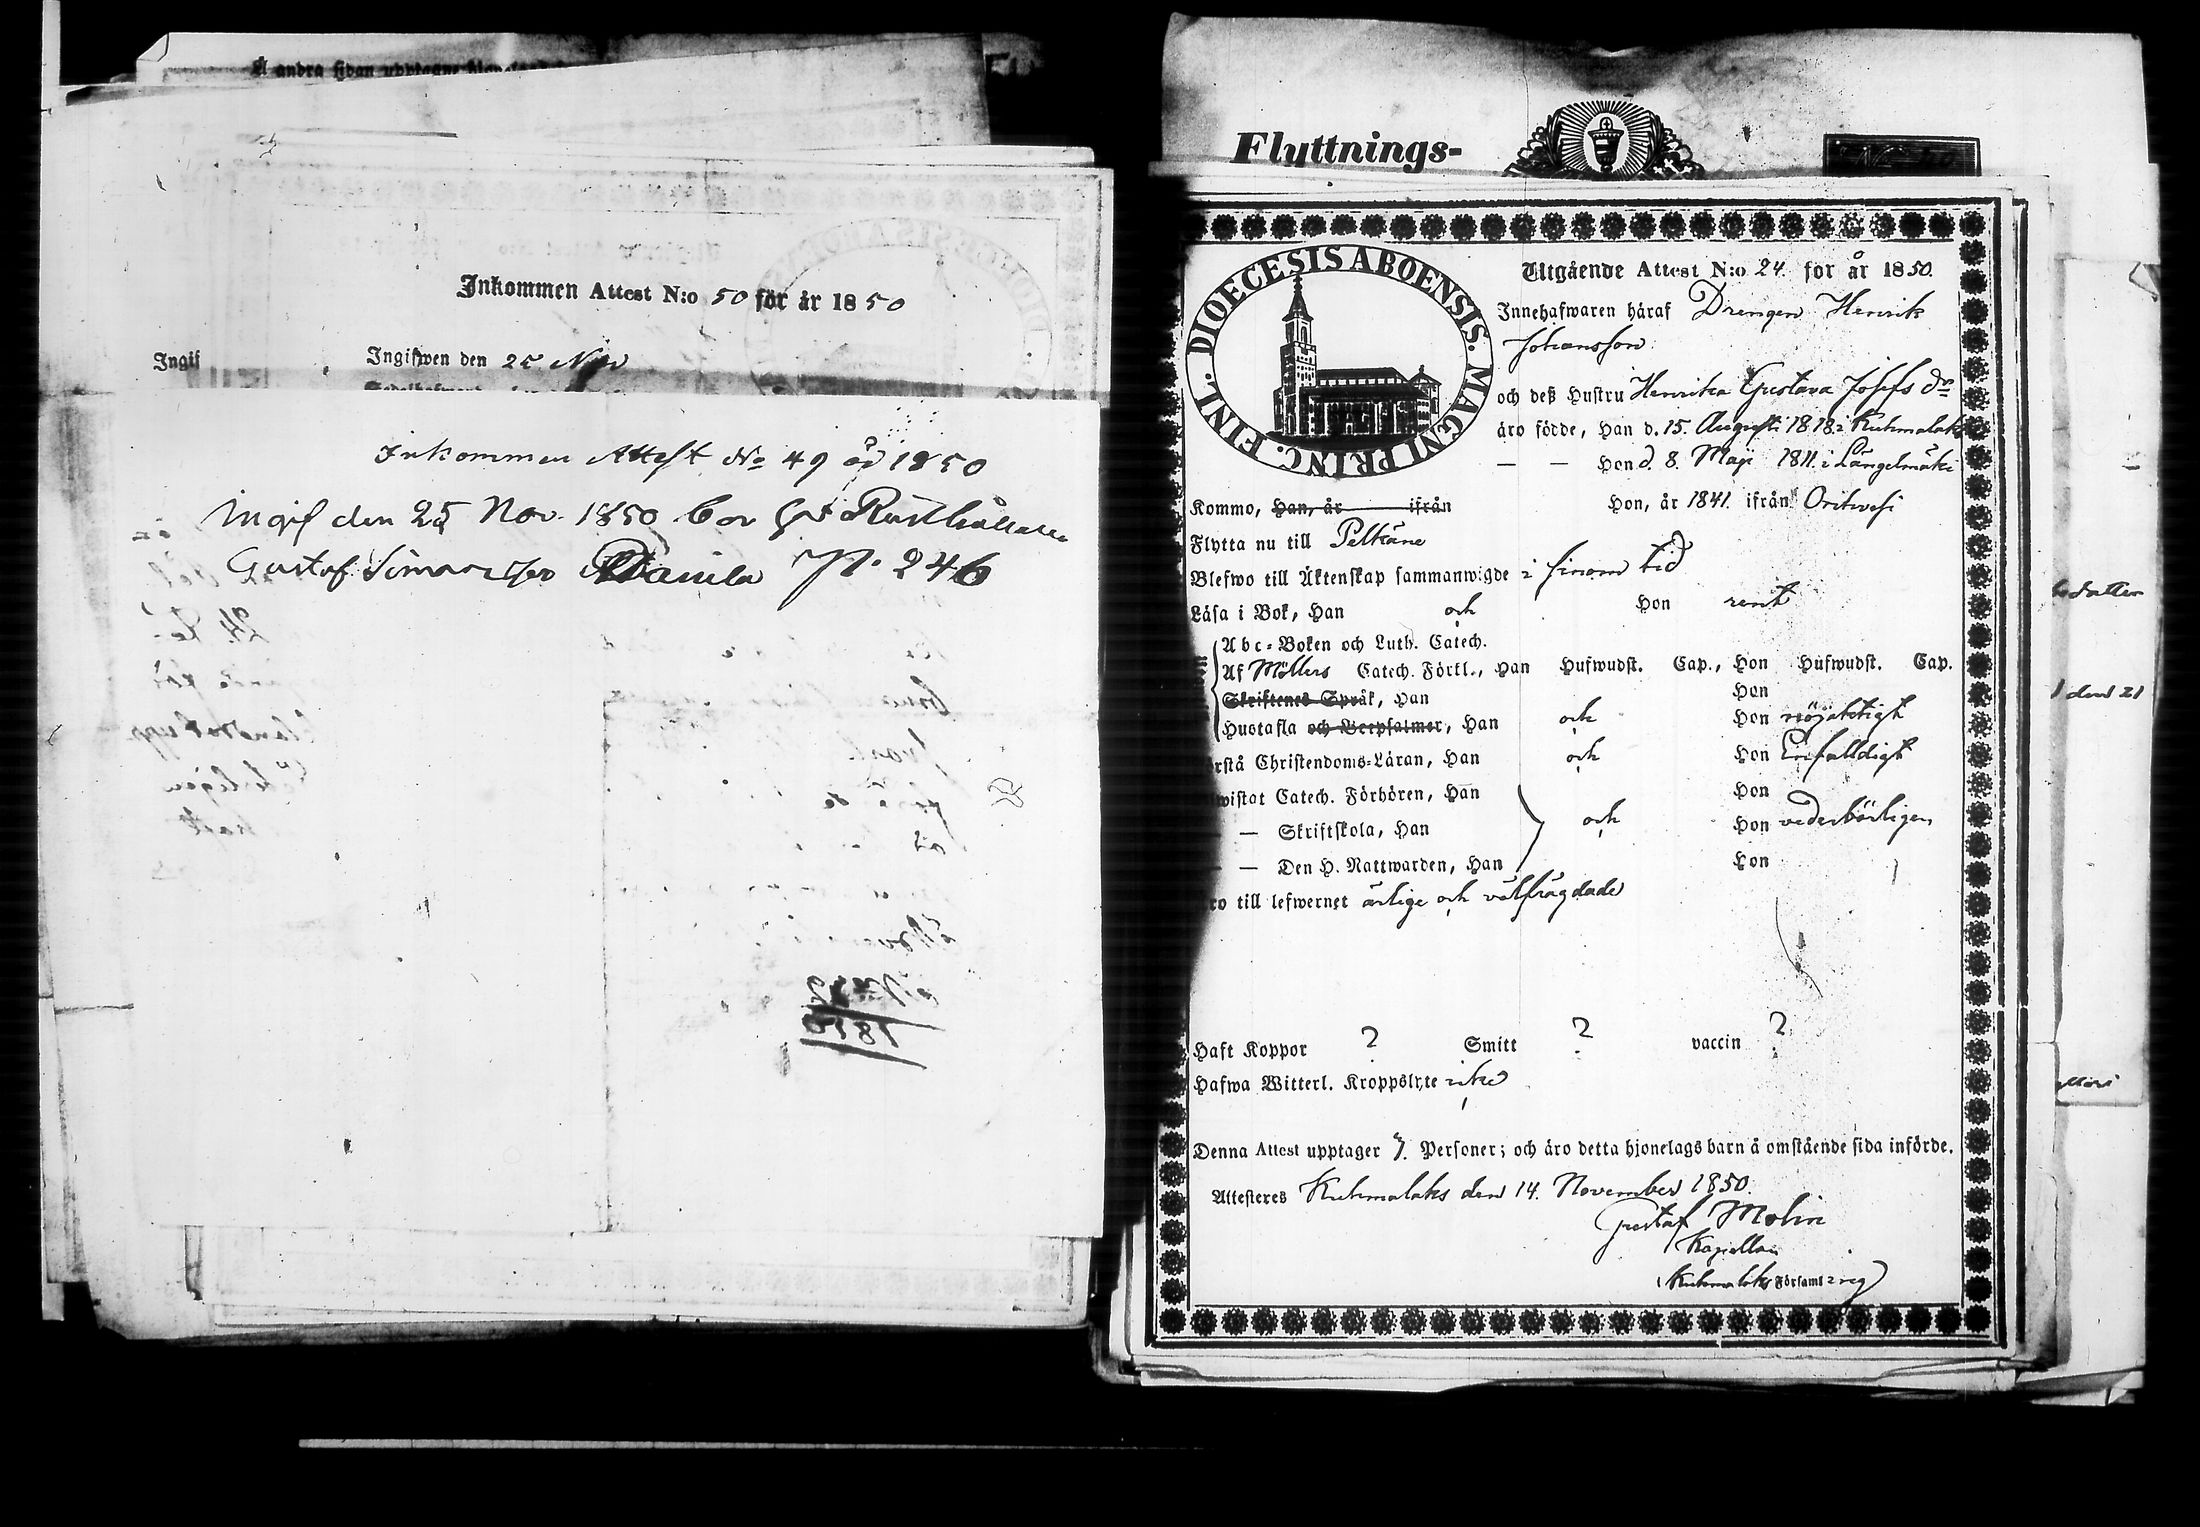 Å andra sidan upptagne
Inkommen Attest N:o 50 för år 1850
Ingif
Ingifwen den 25 Nov
Inkommen Attest No 49 år 1850
Ingif den 25 Nov. 1850 bor hos Rusthållaren
Gustaf Simonsson Danila P. 246
Flyttnings-
DIOECESIS ABOENSIS. MAGNI PRINC. FINL.
Utgående Attest N:o 24. för år 1850.
Innehafwaren häraf Drengen Henrik
Johansson
och deß Hustru Henrika Gustava Josefs dr
äro födde, Han d. 15. Augusti 1818 i Kuhmalaks
— — Hon d. 8. Maji 1811. i Längelmäki
Kommo, Han, år ifrån Hon, år 1841. ifrån Oritvesi
Flytta nu till Pelkäne
Blefwo till Äktenskap sammanwigde i sinom tid
Läsa i Bok, Han och Hon rent
Abc-Boken och Luth. Catech.
Af Möllers Catech. Förkl., Han Hufwudst. Cap., Hon Hufwudst. Cap.
Skriftenes Språk, Han Hon
Hustafla och Beepsalmer, Han och Hon nöjaktigt
rstå Christendoms-Läran, Han och Hon Enfalldigt
wistat Catech. Förhören, Han Hon
— Skriftskola, Han och Hon vederbörligen
— — Den H. Nattwarden, Han Hon
ro till lefwernet ärlige och välfrägdade
Haft Koppor ? Smitt ? vaccin ?
Hafwa Witterl. Kroppslyte icke
Denna Attest upptager 7. Personer; och äro detta hjonelags barn å omstående sida införde.
Attesteres Kuhmalaks den 14. November 1850.
Gustaf Molin
Kapellan
i Kuhmalaks Församling
den 21